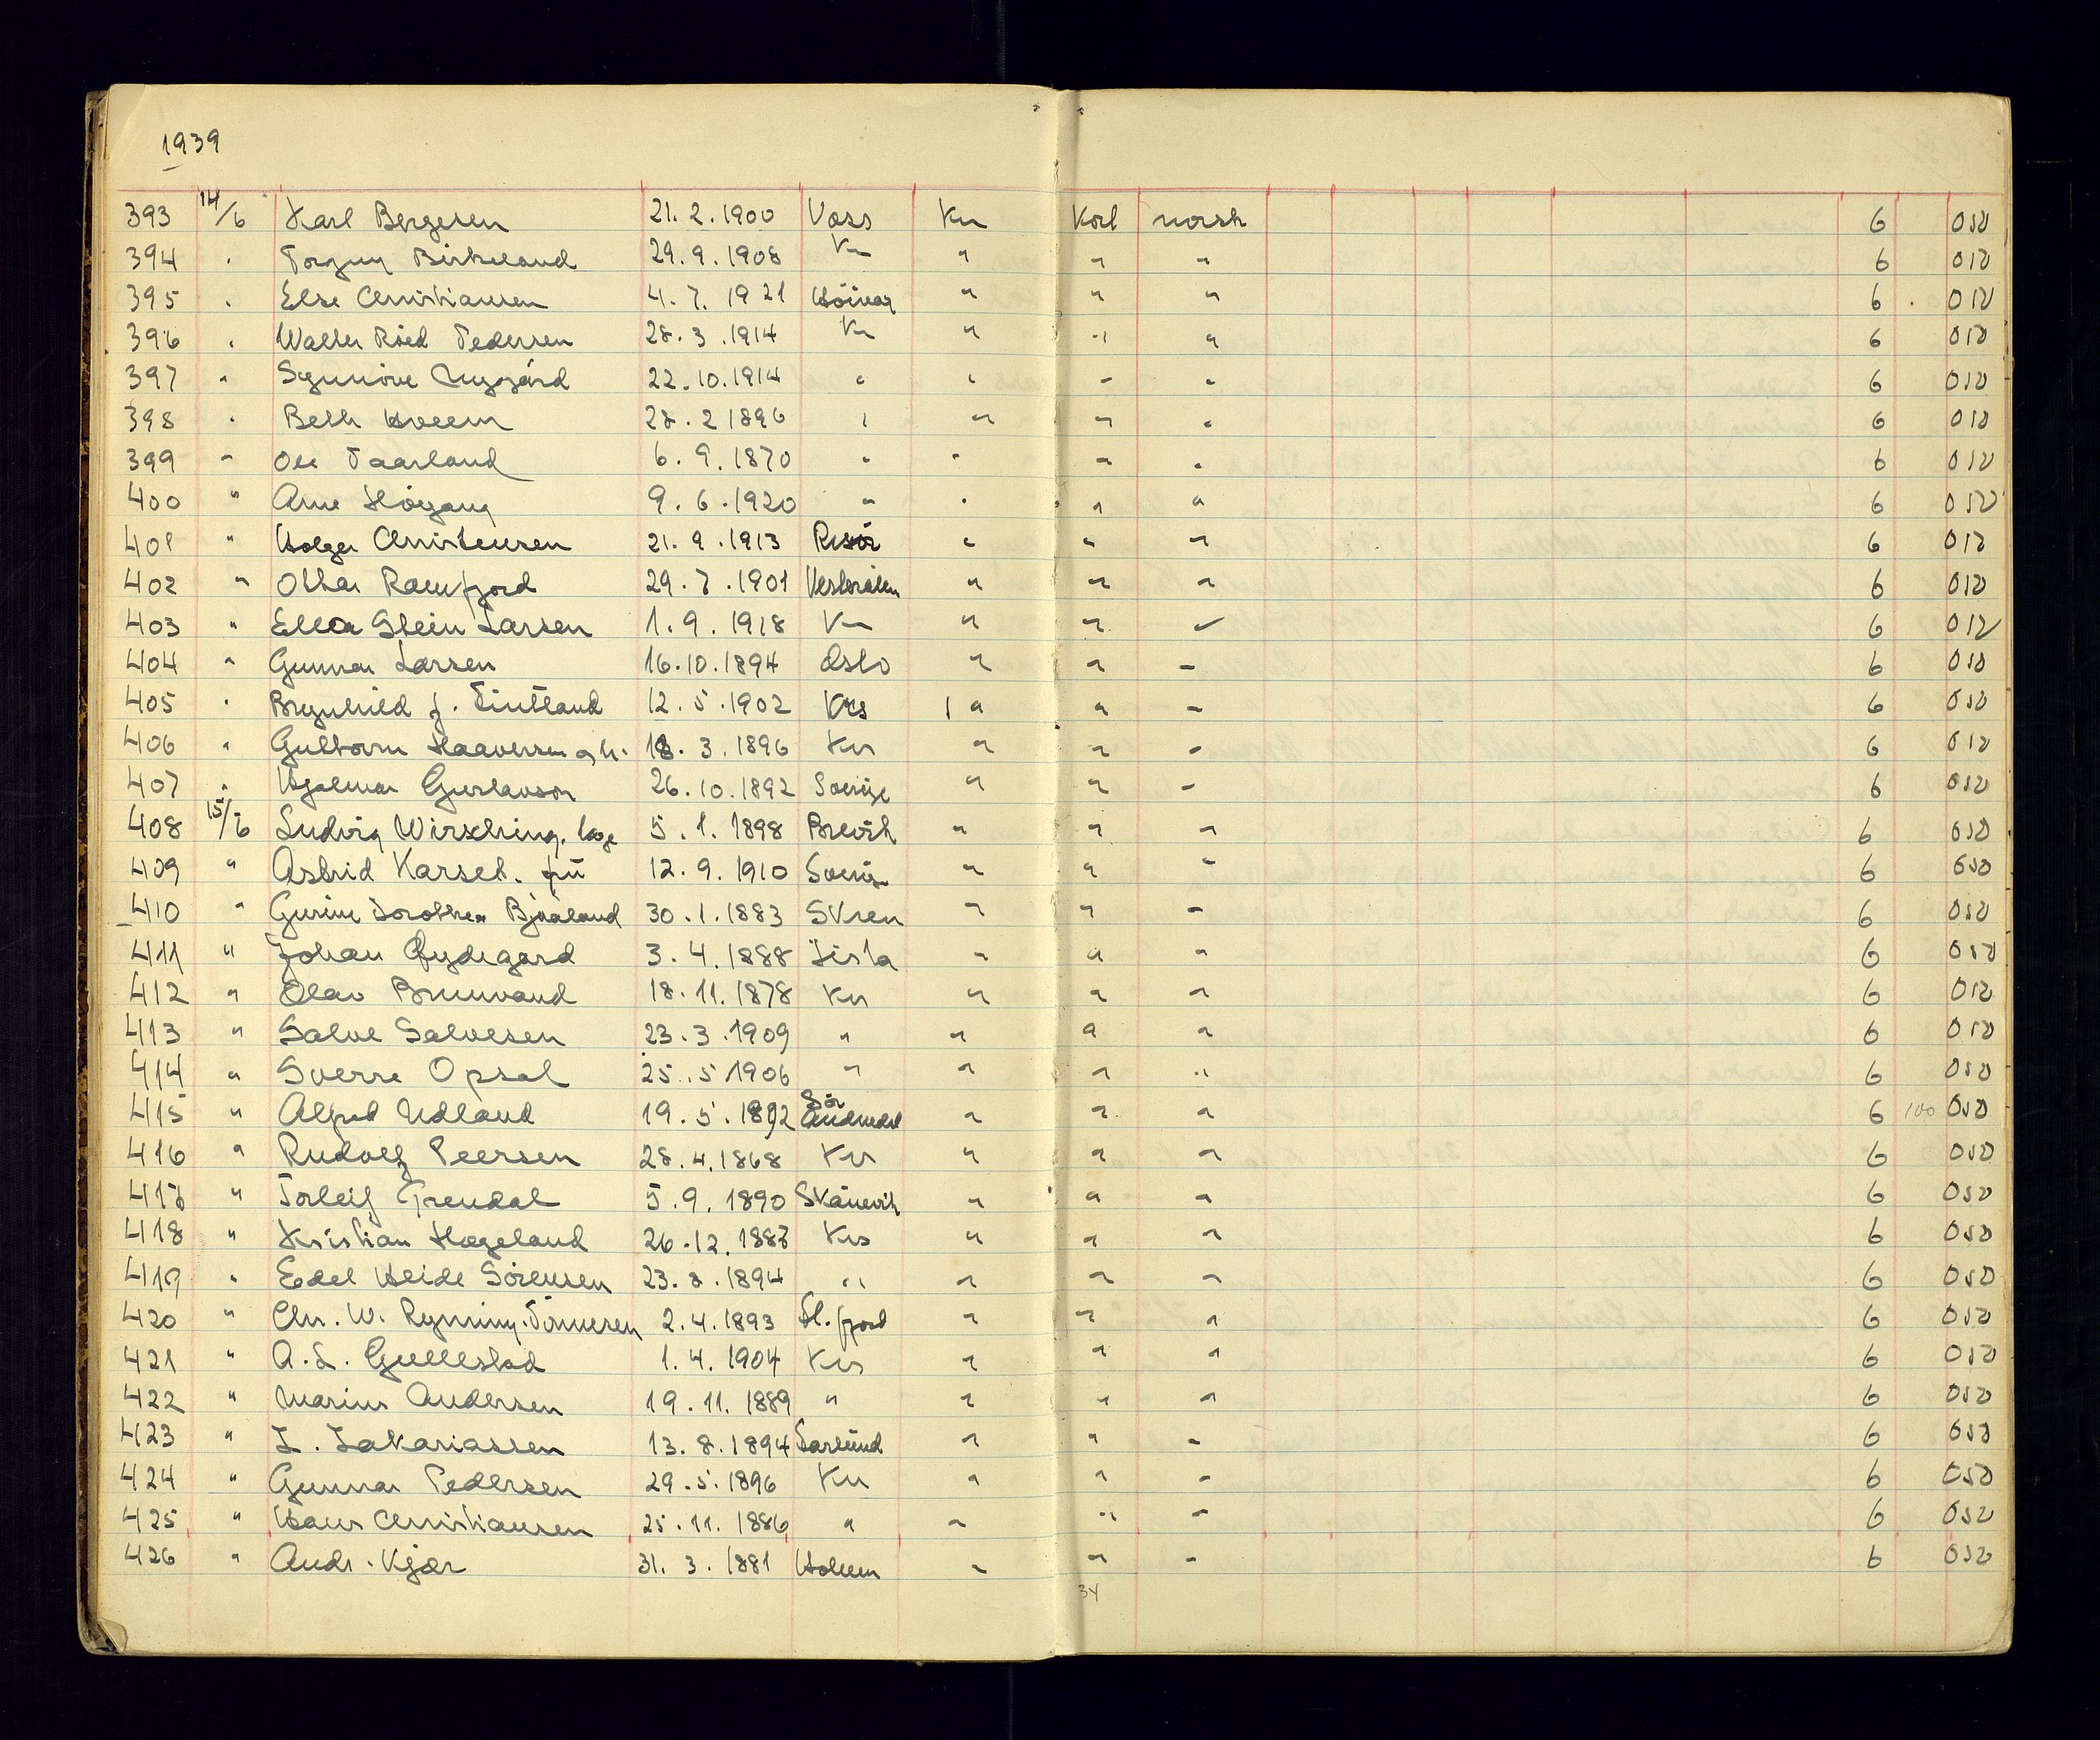 1939
393 14/6 Karl Bergesen 21.2.1900 Voss Kr Kort norsk 6 050
394 . Torguy Birkeland 29.9.1908 Kr " " " 6 050
395 . Else Christiansen 4.7.1921 " " " 6 . 050
396 . Walter Röed Pedersen 28.3.1914 Kr " " " 6 050
397 " Synnöve Nygård 22.10.1914 " " " " 6 050
398 . Beth Hveem 28.2 1896 " " " " 6 050
399 " Ole Taarland 6.9.1870 " " " " 6 050
400 " Arne 9.6.1920 " " " " 6 050
401 " Holger Christensen 21.9.1913 Risör " " " 6 050
402 " Otthar Ramfjord 29.7.1901 Vesterålen " " " 6 050
403 " Ella Stein Larsen 1.9.1918 Kr " " " 6 050
404 " Gunnar Larsen 16.10.1894 Oslo " " " 6 050
405 . Brynhild J. Tintland 12.5.1902 Krs " " " 6 050
406 " Guttorm Haaversen 18.3.1896 Kr " " " 6 050
407 . Hjalmar Gustavson 26.10.1892 Sverige " " " 6 050
408 15/6 Ludvig Wirsching. 5.1.1898 Brevik " " " 6 050
409 " Astrid Karset. 12.9.1910 Sverige " " " 6 050
410 " Gurine Dorothea Bjåaland 30.1.1883 Skien " " " 6 050
411 " Johan Öydegard 3.4.1888 Lista " " " 6 050
412 " Olav Brunvand 18.11.1878 Kr " " " 6 050
413 " Salve Salvesen 23.3.1909 " " " " 6 050
414 " Sverre Opsal 25.5 1906 " " " " 6 050
415 " Alfred Udland 19.5.1892 Sör Audnedal " " " 6 100 050
416 " Rudolf Peersen 28.4.1868 Kr " " " 6 050
417 " Torleif Grendal 5.9.1890 Skånevik " " " 6 050
418 " Kristian Hægeland 26.12.1887 Krs " " " 6 050
419 " Edel Heide Sörensen 23.8.1894 " " " " 6 050
420 " Chr. W. Rynning-Tönnesen 2.4.1893 Fl.fjord " " " 6 050
421 " A. L. Gullestad 1.4.1904 Krs " " " 6 050
422 " Marius Andersen 19.11.1889 " " " " 6 050
423 " Z. Zakariassen 13.8.1894 Farsund " " " 6 050
424 " Gunnar Pedersen 29.5.1896 Kr " " " 6 050
425 " Hans Christiansen 25.11.1886 " " " " 6 050
426 " Andr. Kjær 31.3.1881 Holum " " " 6 050
34